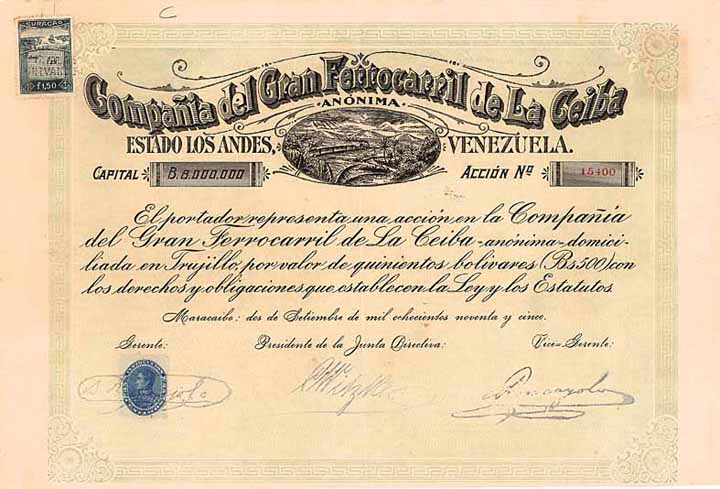 CURAÇAO
f1,50
Compañia del Gran Ferrocarril de La Ceiba
ANÓNIMA
ESTADO LOS ANDES, VENEZUELA.
CAPITAL B. 8.000,000 ACCIÓN No 15400
El portador representa una acción en la Compañía
del Gran Ferrocarril de La Ceiba-anónima-domici-
liada en Trujillo, por valor de quinientos bolivares (Bs500) con
los derechos y obligaciones que establecen la Ley y los Estatutos
Maracaibo: dos de Setiembre de mil ochocientos noventa y cinco.
Gerente: Presidente de la Junta Directiva: Vice-Gerente: